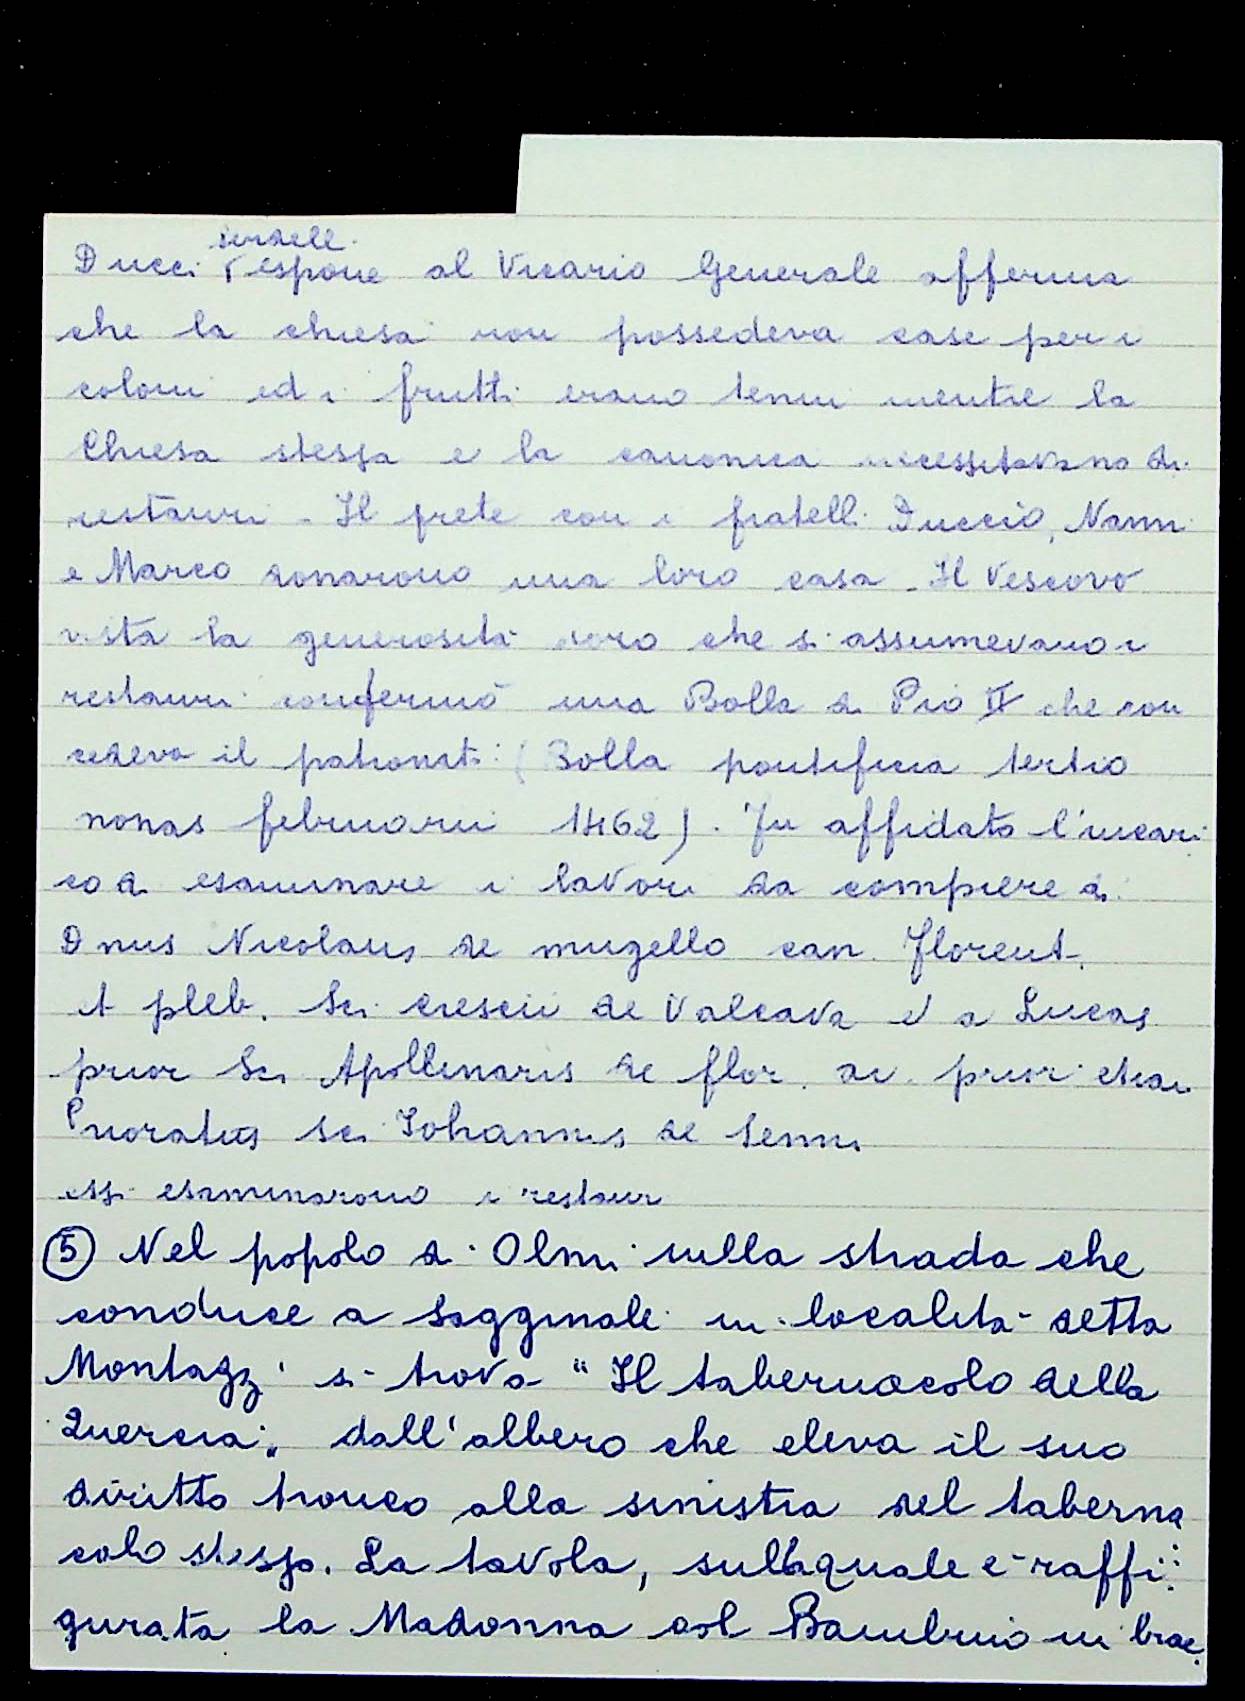 Ducci respone al Vicario Generale afferma
che la chiesa non possedeva case per i
coloni ed i frutti erano tenui mentre la
Chiesa stessa e la canonica necessitavano di
restauri - Il prete con i fratelli Duccio, Nanni
e Marco donarono una loro casa - Il Vescovo
vista la generosità loro che si assumevano i
restauri confermò una Bolla di Pio II che con
cedeva il patronato (Bolla pontificia tertio
nonas februarii 1462). Fu affidato l'incari
co di esaminare i lavori da compiere a
Dnus Nicolaus de mugello can. florent.
et pleb. Sci crescii de Valcava et a Lucas
prior Sci Apollinaris de flor. ac prior etiam
Prioratus Sci Iohannis de Senni
essi esaminarono i restaur
⑤ Nel popolo di Olmi sulla strada che
conduce a Sagginale in località detta
Montagz' si trova "Il tabernacolo della
Quercia„ dall'albero che eleva il suo
diritto tronco alla sinistra del taberna
colo stesso. La tavola, sulla quale è raffi
gurata la Madonna col Bambino in brac